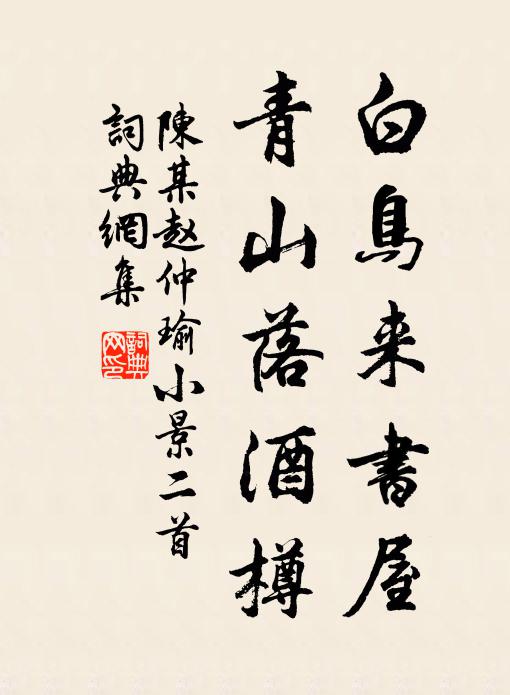 白鳥来書屋
青山落酒樽
陳某赵仲瑜小景二首
詞典網集
詞典网印